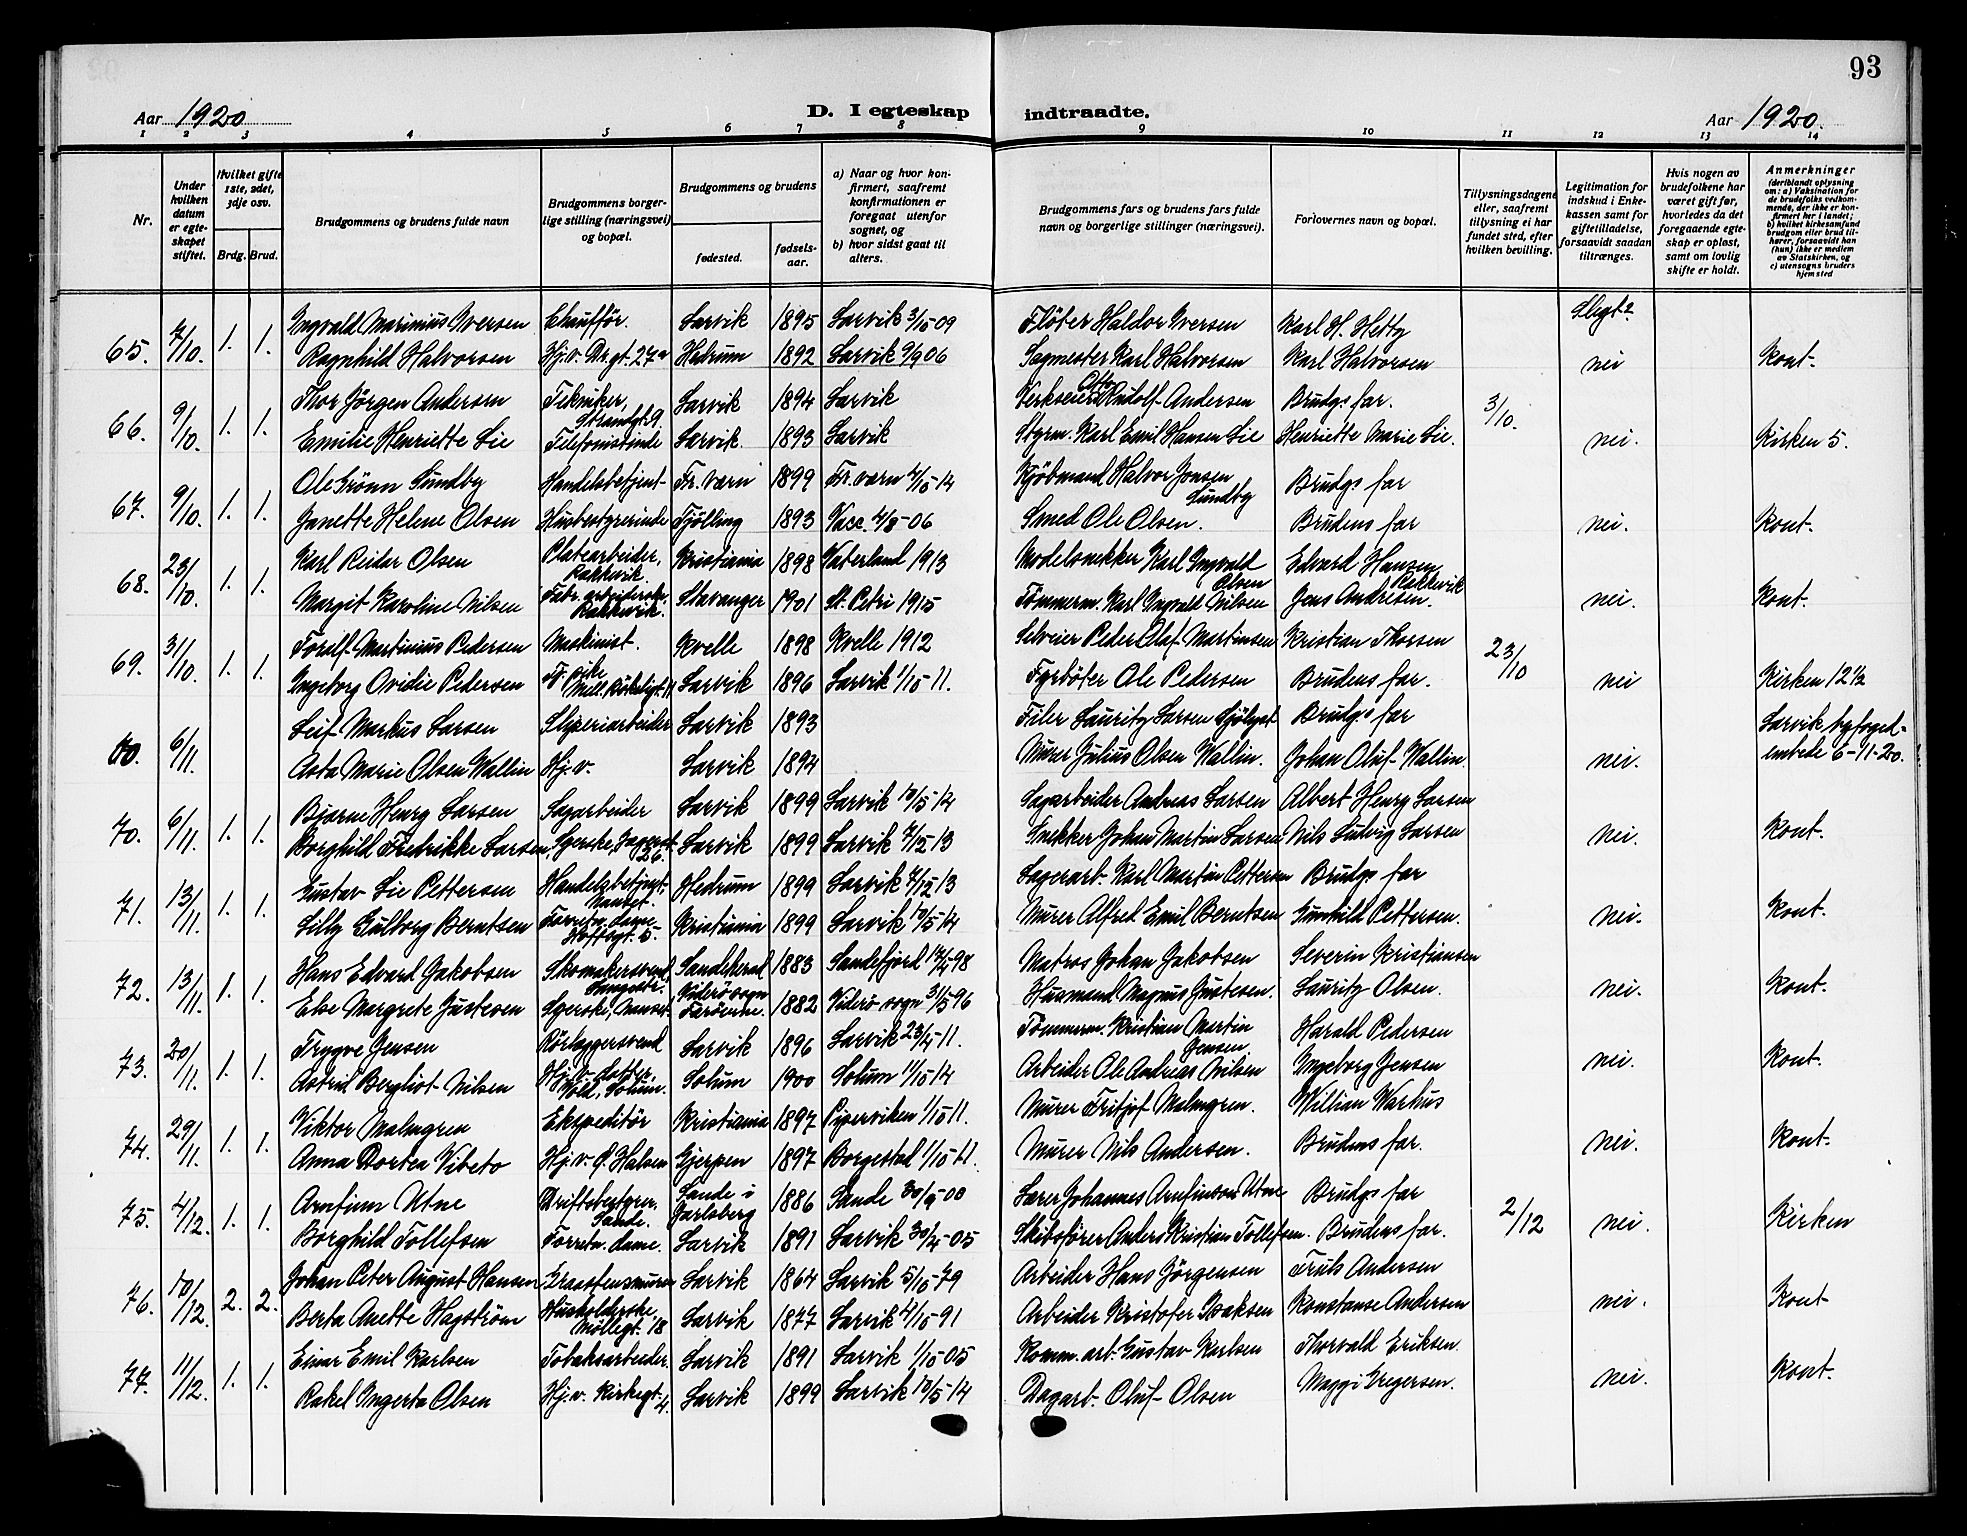 93
Aar 1920 D. I egteskap indtraadte. Aar 1920.
1 2 3 4 5 6 7 8 9 10 11 12 13 14
Nr.
Under hvilken datum er egteskapet stiftet.
Hvilket gifte 1ste, 2det, 3dje osv.
Brdg. Brud.
Brudgommens og brudens fulde navn
Brudgommens borgerlige stilling (næringsvei) og bopæl.
Brudgommens og brudens
fødested.
fødselsaar.
a) Naar og hvor konfirmert, saafremt konfirmationen er foregaat utenfor sognet, og
b) hvor sidst gaat til alters.
Brudgommens fars og brudens fars fulde navn og borgerlige stillinger (næringsvei).
Forlovernes navn og bopæl.
Tillysningsdagene eller, saafremt tillysning ei har fundet sted, efter hvilken bevilling.
Legitimation for indskud i Enkekassen samt for giftetilladelse, forsaavidt saadan tiltrænges.
Hvis nogen av brudefolkene har været gift før, hvorledes da det foregaaende egteskap er opløst, samt om lovlig skifte er holdt.
Anmerkninger
(deriblandt oplysning om: a) Vaksination for de brudefolks vedkommende, der ikke er konfirmert her i landet; b) hvilket kirkesamfund brudgom eller brud tilhører, forsaavidt han (hun) ikke er medlem av Statskirken, og c) utensogns bruders hjemsted
Slegt?
65. 7/10. 1. 1. Ingvald Marinius Iversen Chauffør. Larvik 1895 Larvik 3/10 09 Fløter Haldor Iversen Karl H. Hetty
Ragnhild Halvorsen Hj.v. Drgt. 27a Hedrum 1892 Larvik 9/9 06 Sagmester Karl Halvorsen Karl Halvorsen nei Kont.
66. 9/10. 1. 1. Thor Jörgen Andersen Tekniker, Strandgt 9. Larvik 1894 Larvik Verkseier Otto Rudolf Andersen Brudgs far. 3/10.
Emilie Henriette Lie Telefonistinde Larvik. 1893 Larvik Styrm. Karl Emil Hansen Lie Henriette Marie Lie. nei. Kirken 5.
67. 9/10. 1. 1. Ole Grönn Sundby Handelsbetjent Fr. værn 1899 Fr. værn 4/10-14 Kjöbmand Halvor Jonsen Sundby Brudgs far
Janette Helene Olsen Husbestyrerinde Tjølling 1893 Vacc. 4/8-06 Smed Ole Olsen. Brudens far nei. Kont.
68. 23/10. 1. 1. Karl Reidar Olsen Platearbeider, Rakkevik. Kristiania 1898 Vaterland 1913 Modelsnekker Karl Ingvald Olsen Edvard Hansen Rakkevik
Margit Karoline Nilsen Fabr. arbeiderske Rakkevik. Stavanger 1901 St. Petri 1915 Tømmerm. Karl Ingvald Nilsen Jens Andresen. nei. Kont.
69. 31/10. 1. 1. Toralf Martinius Pedersen Maskinist. Kvelle 1898 Kvelle 1912 Selveier Peder Olaf Martinsen Kristian Thorsen 23/10
Ingeborg Ovidie Pedersen Tj. pike Larvik 1896 Larvik 1/10 11. Fyrböter Ole Pedersen Brudens far. nei Kirken 12 1/2
00. 6/11. Leif Markus Larsen Sliperiarbeider Larvik 1893 Filer Lauritz Larsen Sjölyst Brudgs far Larvik byfoged-
Asta Marie Olsen Wallin Hj.v. Larvik 1894 Murer Julius Olsen Wallin. Johan Oluf Wallin. nei. embede 6-11-20.
70. 6/11. 1. 1. Bjarne Henry Larsen Sagarbeider Larvik 1899 Larvik 10/5-14 Sagarbeider Andreas Larsen Albert Henry Larsen
Borghild Fredrikke Larsen, Syerske, 26. Larvik 1899 Larvik 7/12 13 Snekker Johan Martin Larsen Nils Ludvig Larsen nei. Kont.
71. 13/11. 1. 1. Gustav Lie Pettersen Handelsbetjent. Nanset. Hedrum 1899 Larvik 7/12 13 Lagerarb. Karl Martin Pettersen Brudgs far
Lilly Gulborg Berntsen Forretn. dame Kristiania 1899 Larvik 10/5-14 Murer Alfred Emil Berntsen Gunhild Pettersen. nei. Kont.
72. 13/11. 1. 1. Hans Edvard Jakobsen Skomakersvend Sandeherad 1883 Sandefjord 17/4-98 Matros Johan Jakobsen Severin Kristiansen
Else Margrete Justesen Syerske, Nanset Viderö sogn Færöerne. 1882 Viderö sogn 31/5 96 Husmand Magnus Justesen. Lauritz Olsen. nei. Kont.
73. 20/11. 1. 1. Trygve Jensen Rörlæggersvend Larvik 1896 Larvik 23/4-11. Tømmerm. Kristian Martin Jensen Harald Pedersen
Astrid Bergliot Nilsen Hj.v. Solum 1900 Solum 11/10 14 Arbeider Ole Andreas Nilsen Ingeborg Jensen nei. Kont.
74. 29/11. 1. 1. Viktor Malmgren Ekspeditör Kristiania 1897 Piperviken 1/10 11. Murer Fritjof Malmgren. Willian Warhus
Anna Dortea Vibeto Hj.v. Ø. Halsen Gjerpen 1897 Borgestad 1/10-11. Murer Nils Andersen. Brudens far. nei. Kont.
75. 4/12. 1. 1. Arnfinn Utne Driftsbestyrer. Sande. Sande i Jarlsberg 1886 Sande 30/9-00 Lærer Johannes Arnfinson Utne Brudgs far 2/12
Borghild Tollefsen Forretn. dame. Larvik 1891 Larvik 30/4-05 Skibsfører Anders Kristian Tollefsen. Brudens far. nei. Kirken
76. 10/12. 2. 2. Johan Peter August Hansen Graastensmurer Larvik 1864 Larvik 5/10-79 Arbeider Hans Jörgensen Truls Andersen
Berta Anette Hagström Husholderske, Möllegt. 18 Larvik 1877 Larvik 4/10-91 Arbeider Kristofer Isaksen Konstanse Andersen nei. Kont.
77. 11/12. 1. 1. Einar Emil Karlsen Tobaksarbeider. Larvik 1891 Larvik 1/10-05 Komm. arb. Gustav Karlsen Thorvald Eriksen.
Rakel Ingerta Olsen Hj.v. Kirkegt. 4. Larvik 1899 Larvik 10/5-14 Dagarb. Oluf Olsen Maggi Gregersen. nei. Kont.